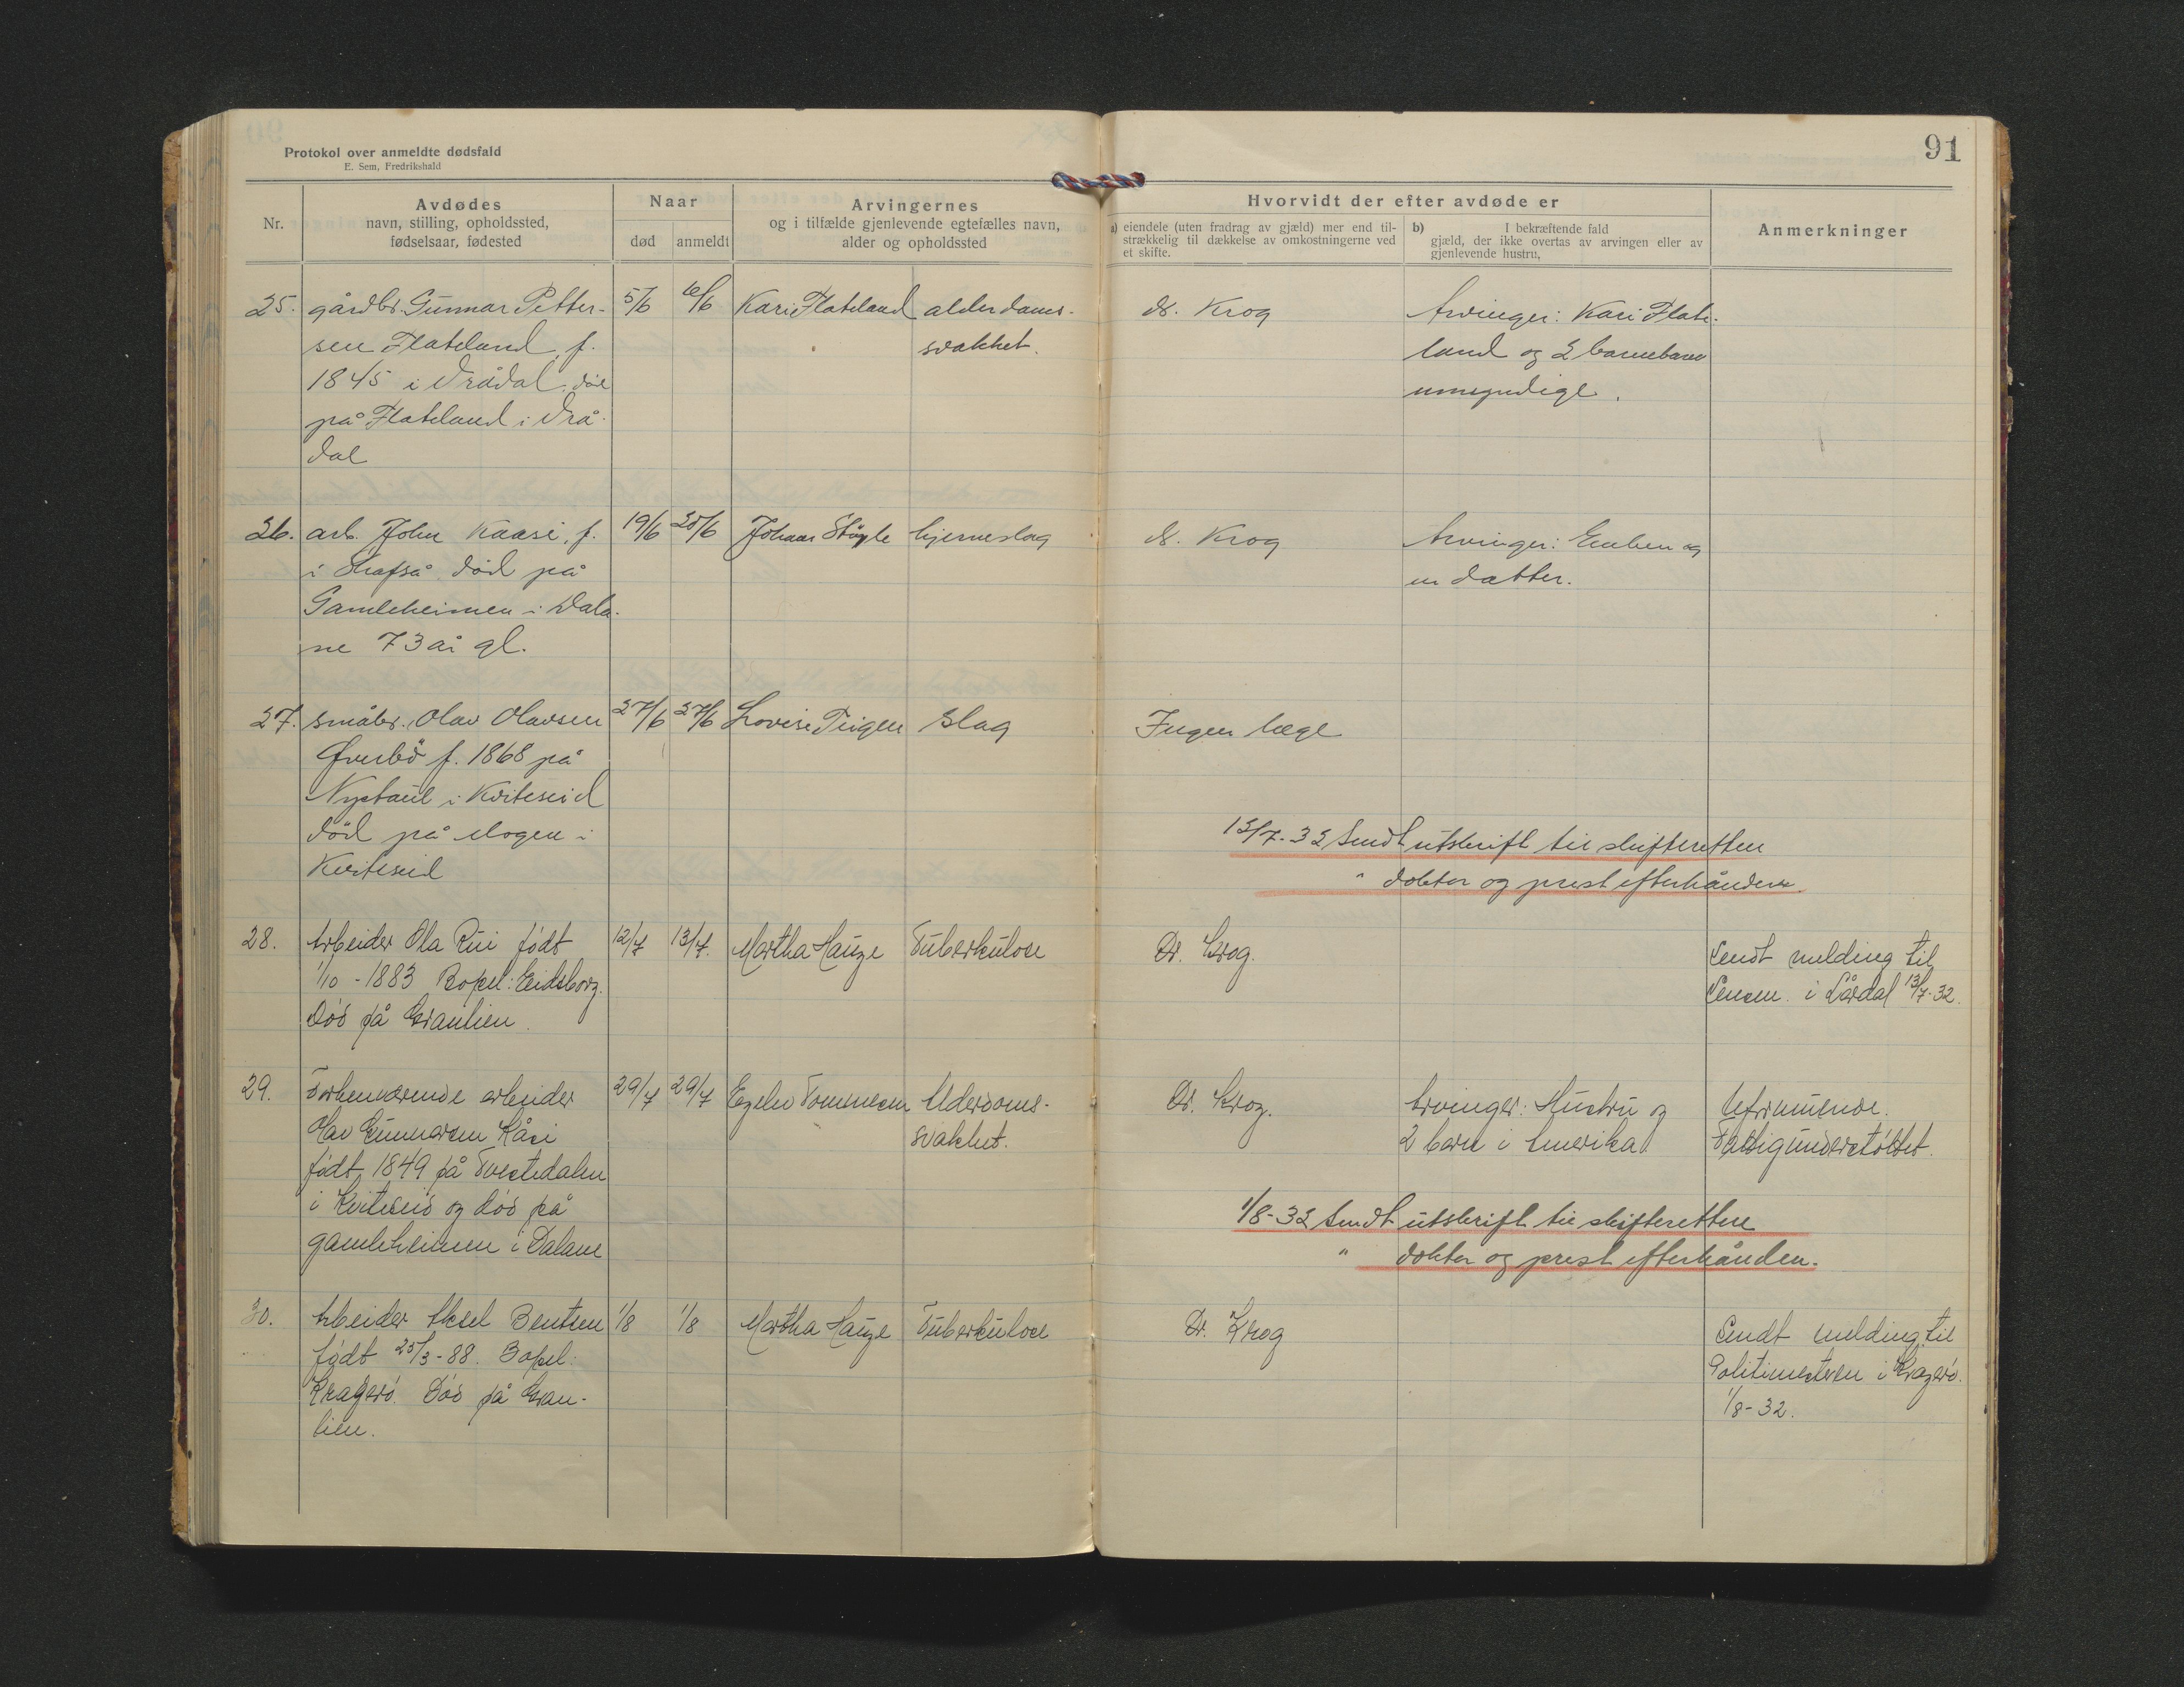 91
Protokol over anmeldte dødsfald
E. Sem, Fredrikshald
Nr.
Avdødes
navn, stilling, opholdssted,
fødselsaar, fødested
Naar
død
anmeldt
Arvingernes
og i tilfælde gjenlevende egtefælles navn,
alder og opholdssted
Hvorvidt der efter avdøde er
a) eiendele (uten fradrag av gjæld) mer end til-
strækkelig til dækkelse av omkostningerne ved
et skifte.
b) I bekræftende fald
gjæld, der ikke overtas av arvingen eller av
gjenlevende hustru,
Anmerkninger
25. gårdbr. Gunnar Petter- 5/6 6/6 Kari Flateland alderdoms- dr. Krog Arvinger: Kari Flate-
sen Flateland, f. svakhet. land og 2 barnebarn
1845 i Vrådal, död umyndige.
på Flateland i Vrå-
dal
26. arb. John Kaasi, f. 19/6 20/6 Johan Støyle hjerneslag dr. Krog Arvinger: Enken og
i Skafså död på en datter.
Gamleheimen i Dala-
ne 73 år gl.
27. småbr. Olav Olavsen 27/6 27/6 Lovise Teigen slag Ingen læge
Øverbö f. 1868 på
Nystaul i Kviteseid
död på Mogen i
Kviteseid
13/7-32 Sendt utskrift til skifteretten
" doktor og prest efterhånden.
28. Arbeider Ola Rui født 12/7 13/7. Martha Hauge Tuberkulose Dr. Krog. Sendt melding til
1/10-1883 Bopel: Eidsborg. Lensm. i Lårdal 13/7-32.
Död på Granlien.
29. Forhenværende arbeider 29/7 29/7 Egeliv Tommesen Alderdoms- Dr. Krog. Arvinger: Hustru og Uformuende.
Olav Gunnarsen Kåsi svakhet. 2 barn i Amerika Fattigunderstöttet.
født 1849 på Tveitedalen
i Kviteseid og död på
gamleheimen i Dalane
1/8-32 Sendt utskrift til skifteretten
" doktor og prest efterhånden.
30. Arbeider Aksel Bentsen 1/8 1/8 Martha Hauge Tuberkulose Dr. Krog Sendt melding til
født 25/3-88. Bopel: Politimesteren i Kragerö.
Kragerö. Död på Gran- 1/8-32.
lien.